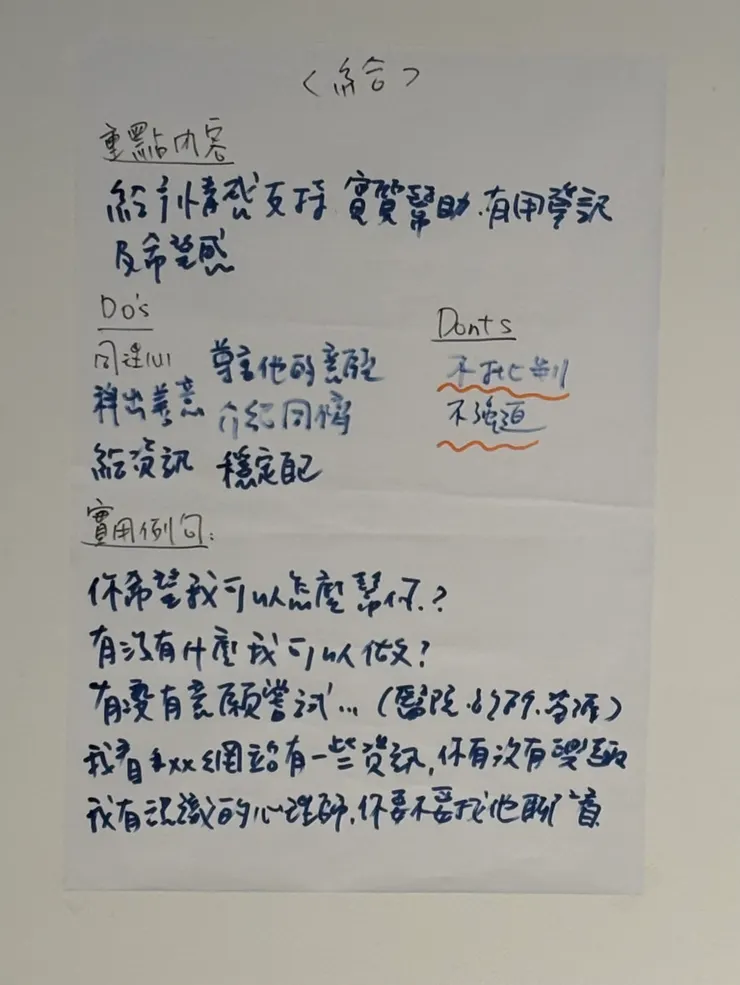 <給>
重點內容
給予情感支持、實質幫助、有用資訊
及希望感
Do's
同理心 尊重他的意願
釋出善意 介紹同儕
給資訊 穩定自己
Donts
不批判
不強迫
實用例句:
你希望我可以怎麼幫你?
有沒有什麼我可以做?
有沒有意願嘗試... (醫院.診所.
我看到xx網站有一些資訊,你有沒有興趣
我有認識的心理師,你要不要找他聊